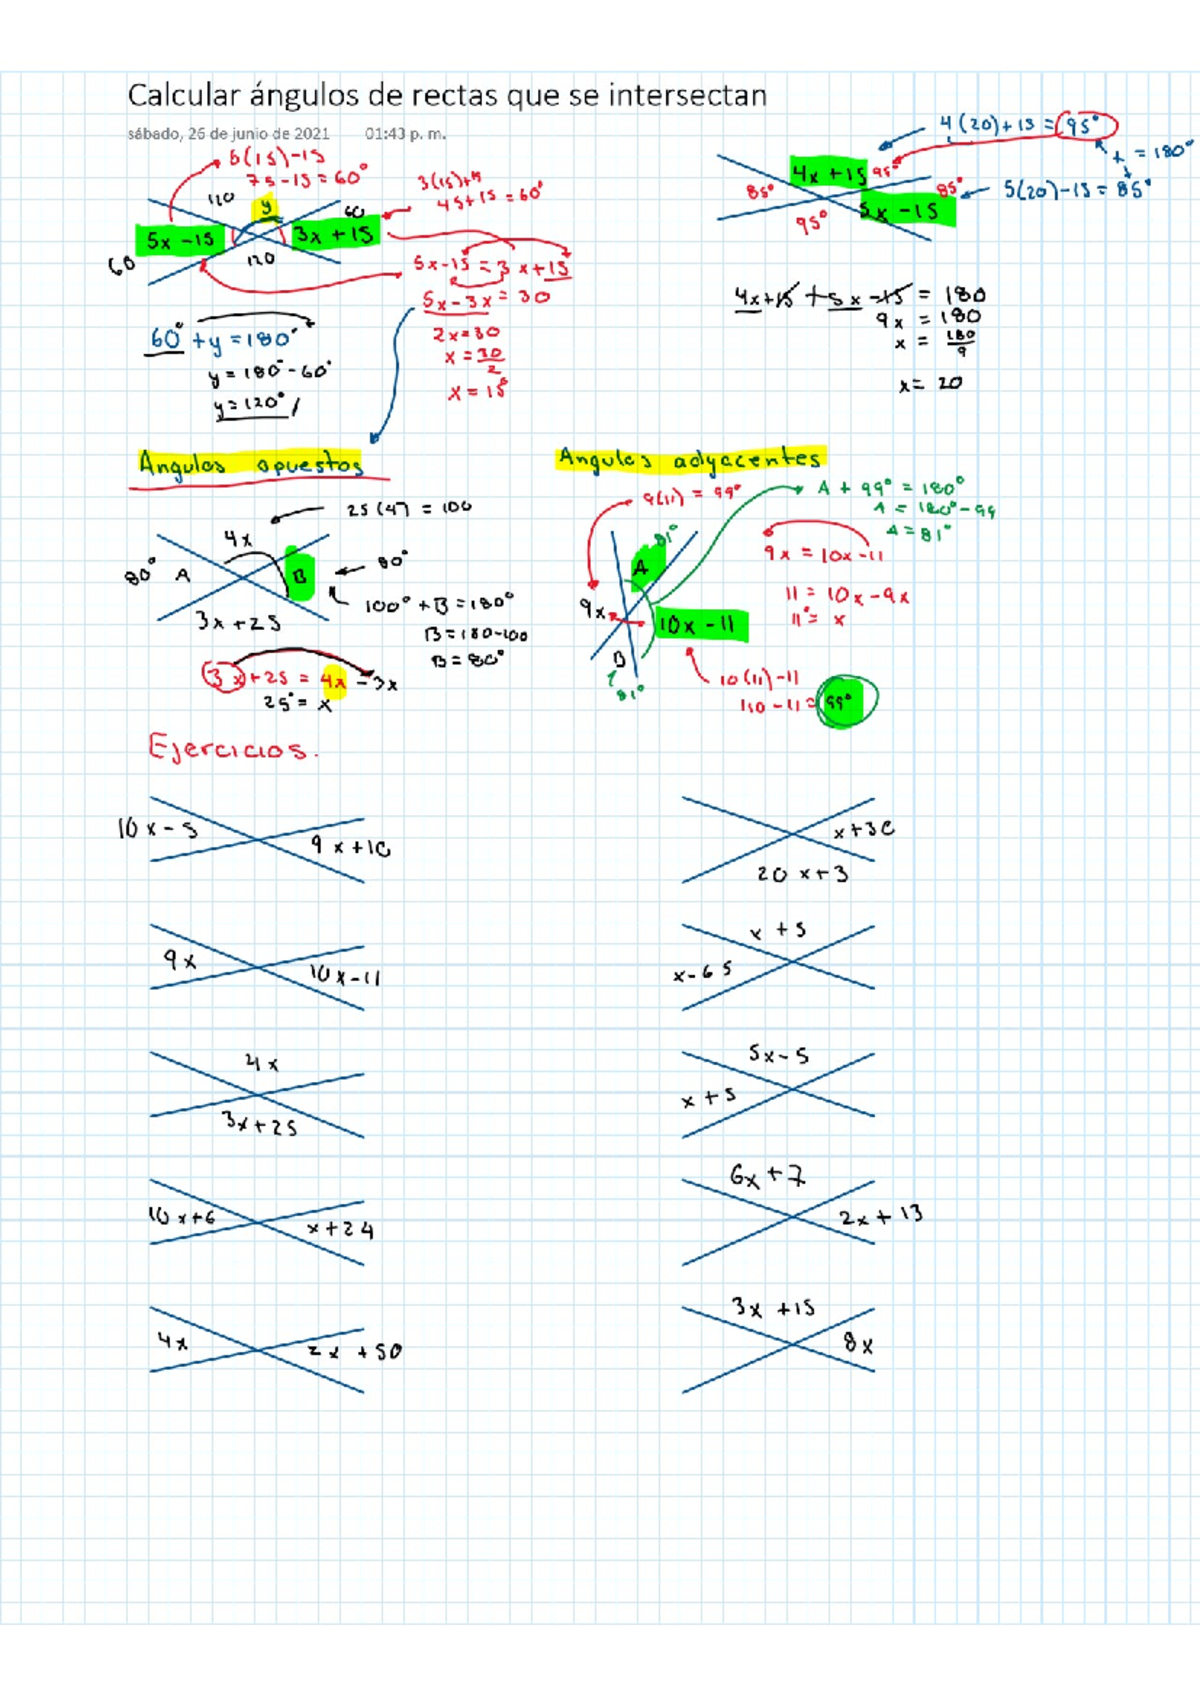 Calcular ángulos de rectas que se intersectan
sábado, 26 de junio de 2021 01:43 p. m.
5(15)-15
75-15=60°
120
y
60
5x-15
3x+15
60
120
3(15)+15
45+15=60°
5x-15=3x+15
5x-3x=30
2x=30
x=30/2
x=15°
60°+y=180°
y=180°-60°
y=120°
4(20)+15=95°
+ = 180°
5(20)-15=85°
4x+15
95°
85°
85°
5x-15
95°
4x+15+5x-15=180
9x=180
x=180/9
x=20
Angulos opuestos
25(4)=100
4x
80°
A
B
80°
3x+25
100°+B=180°
B=180-100
B=80°
3x+25=4x-3x
25°=x
Angulos adyacentes
9(11)=99°
A+99°=180°
A=180°-99
A=81°
81°
A
9x
10x-11
B
81°
9x=10x-11
11=10x-9x
11°=x
10(11)-11
110-11=99°
Ejercicios.
10x-5
9x+10
x+30
20x+3
9x
10x-11
x+5
x-65
4x
3x+25
5x-5
x+5
10x+6
x+24
6x+7
2x+13
4x
2x+50
3x+15
8x